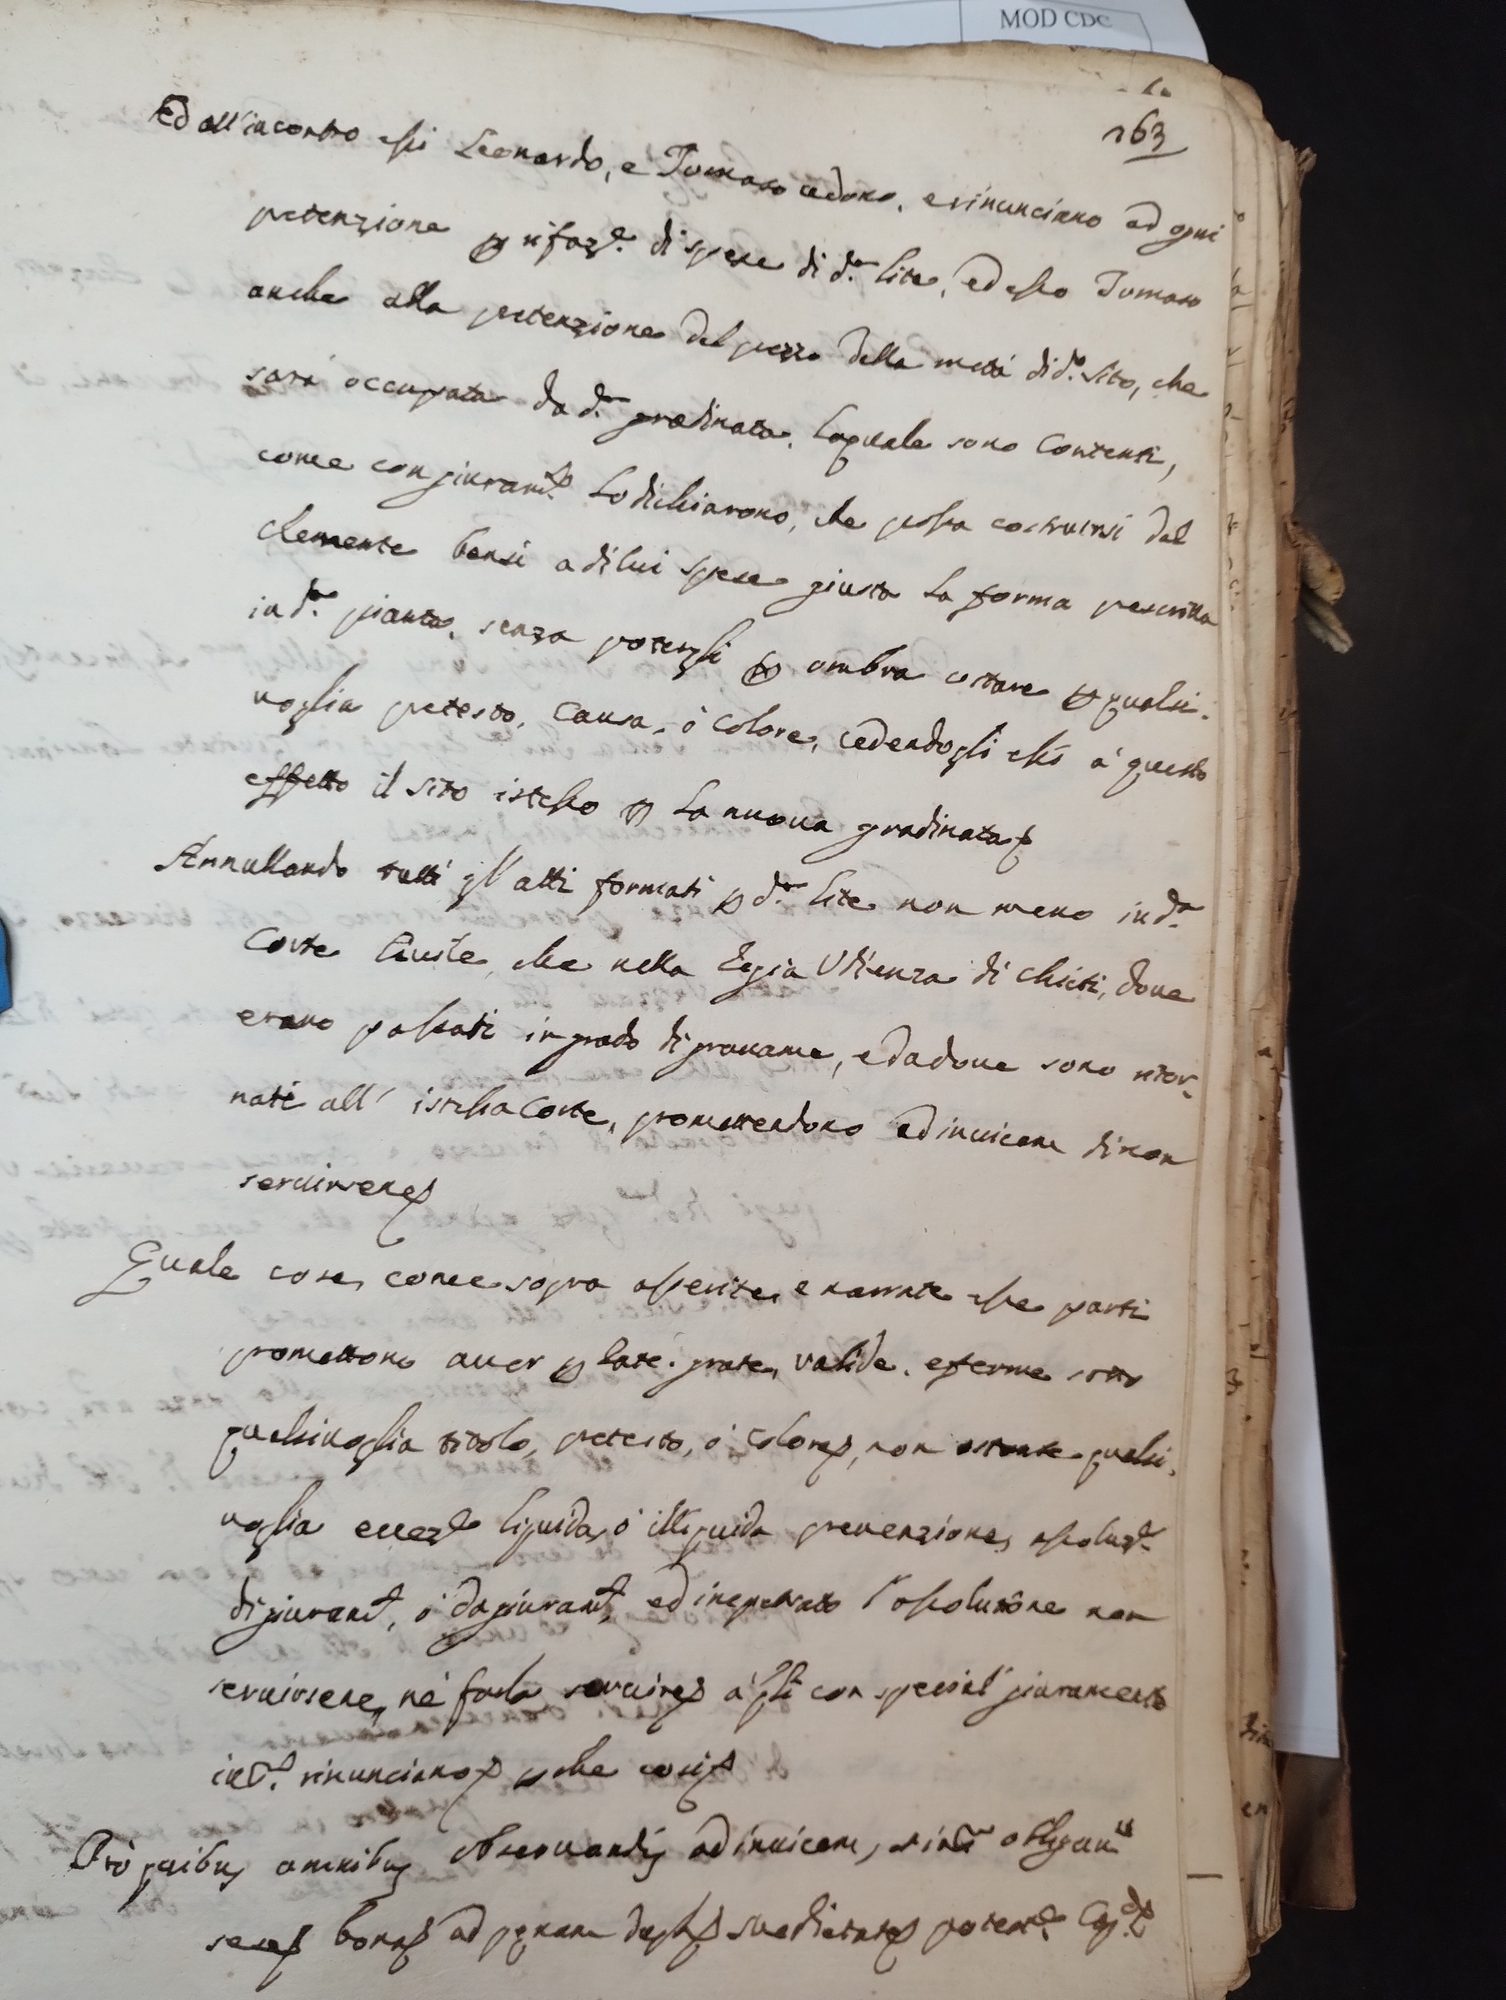 MOD CDC
163
Ed all'incontro essi Leonardo, e Tomaso cedono, e rinunciano ad ogni
pretenzione p rifaz.e di spese di d.a lite, ed esso Tomaso
anche alla pretenzione del prezzo della metà di d.o sito, che
sarà occupata da d.a gradinata, la quale sono contenti,
come con giuram.to lo dichiarono, che possa costruirsi dal
Clemente bensì a di lui spese giusta la forma prescritta
in d.a pianta, senza potersegli p ombra ostare p qualsi-
voglia pretesto, causa, ò colore, cedendogli essi à questo
effetto il sito istesso p la nuova gradinata
Annullando tutti gl'atti formati p d.a lite non meno in d.a
Corte Civile, che nella Regia Udienza di Chieti, dove
erano passati in grado di gravame, e da dove sono ritor-
nati all' istessa Corte, promettendono ad invicem di non
servirsene
Quale cose, come sopra asserite, e narrate esse parti
promettono aver p rate, grate, valide, e ferme sotto
qualsivoglia titolo, pretesto, ò colore, non ostante qualsi-
voglia eccez.e liquida, ò illiquida prevenzione, assoluz.e
di giuram.to, ò da giuram.to, ed impetrato l'assoluzione non
servirsene, nè farla servire à q.li con special giuramento
in d. rinunciano p che così
Prò quibus omnibus observandis ad invicem, obligaver.
sese bona ad penam dupli medietate potest.e Cap.